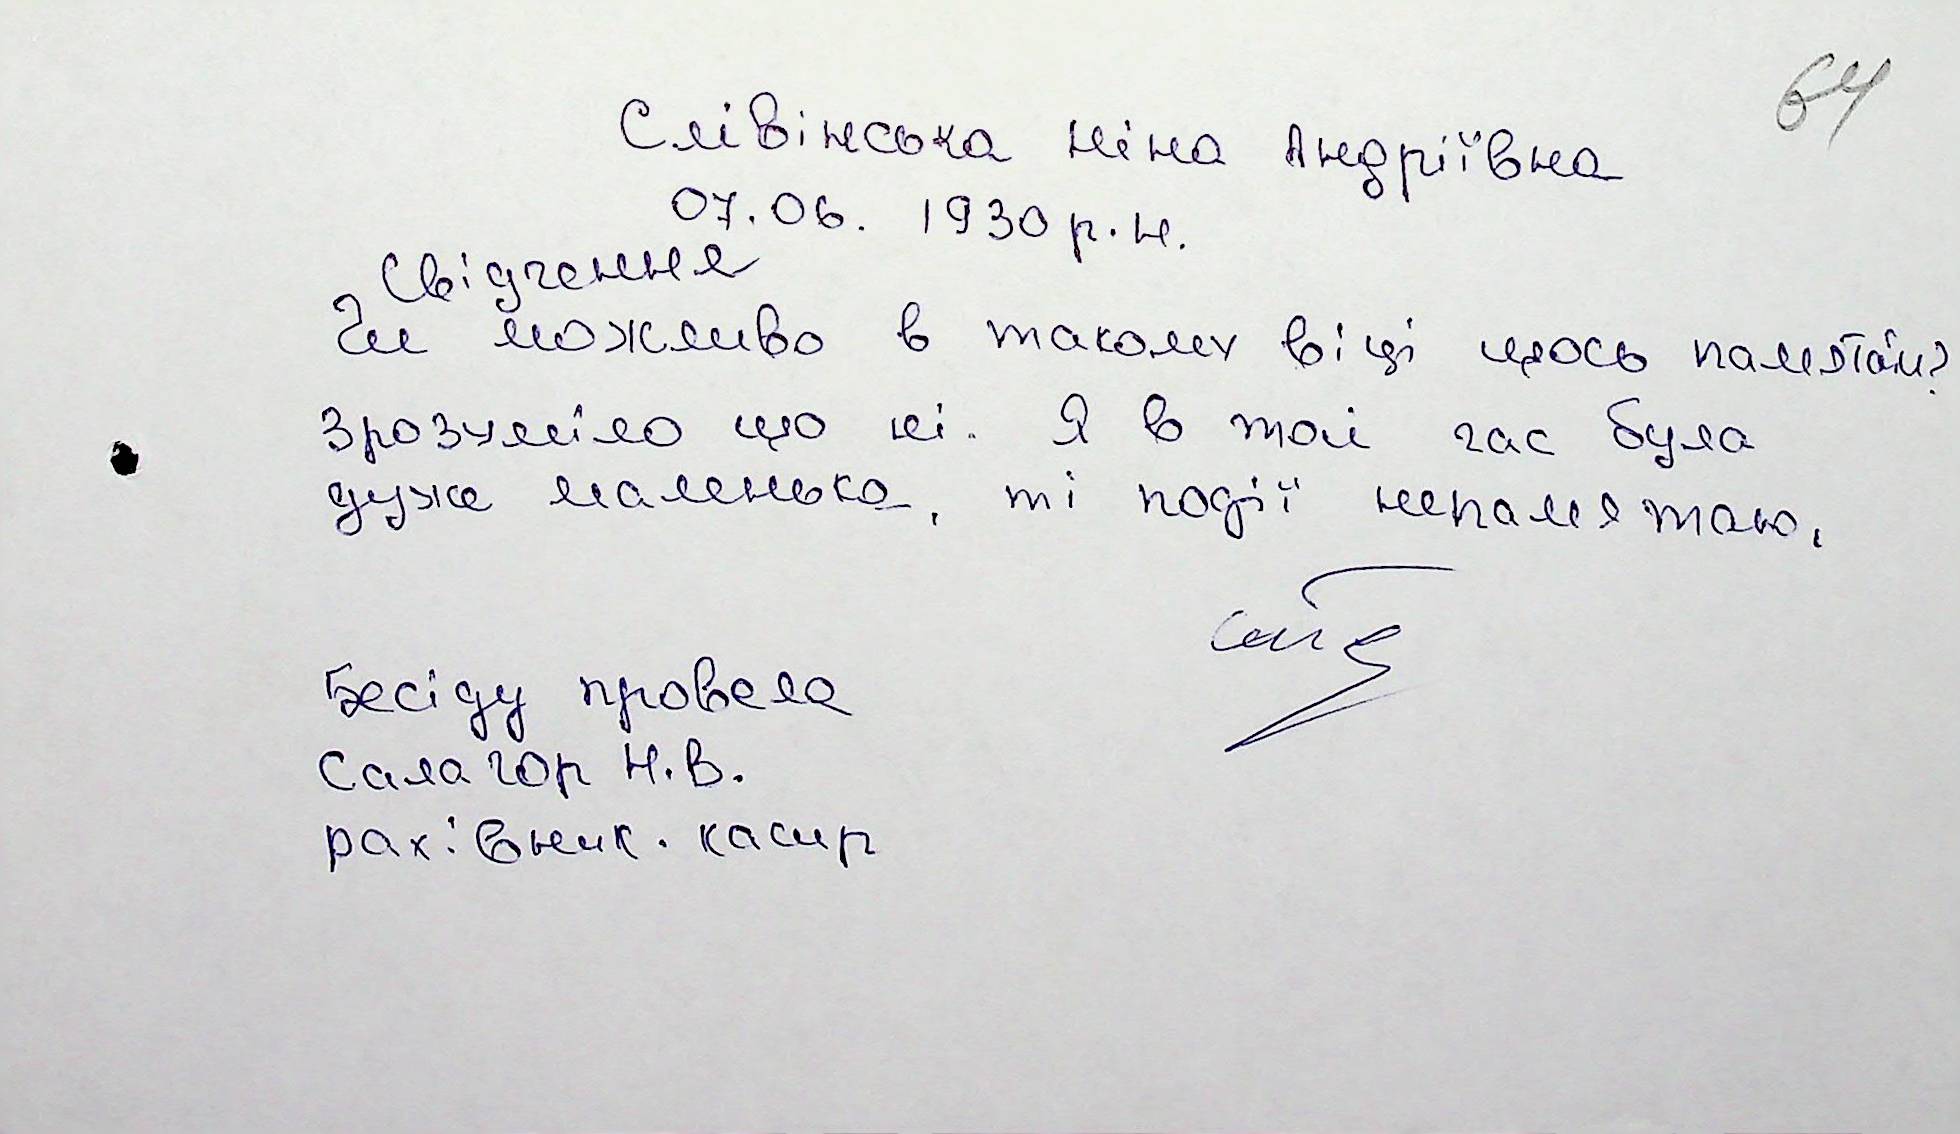 64
Слівінська Ніна Андріївна
07.06. 1930 р.н.
Свідчення
Чи можливо в такому віці щось памятати?
Зрозуміло що ні. Я в той час була
дуже маленька, ті події непамятаю.
Бесіду провела
Салагор Н.В.
рахівник. касир